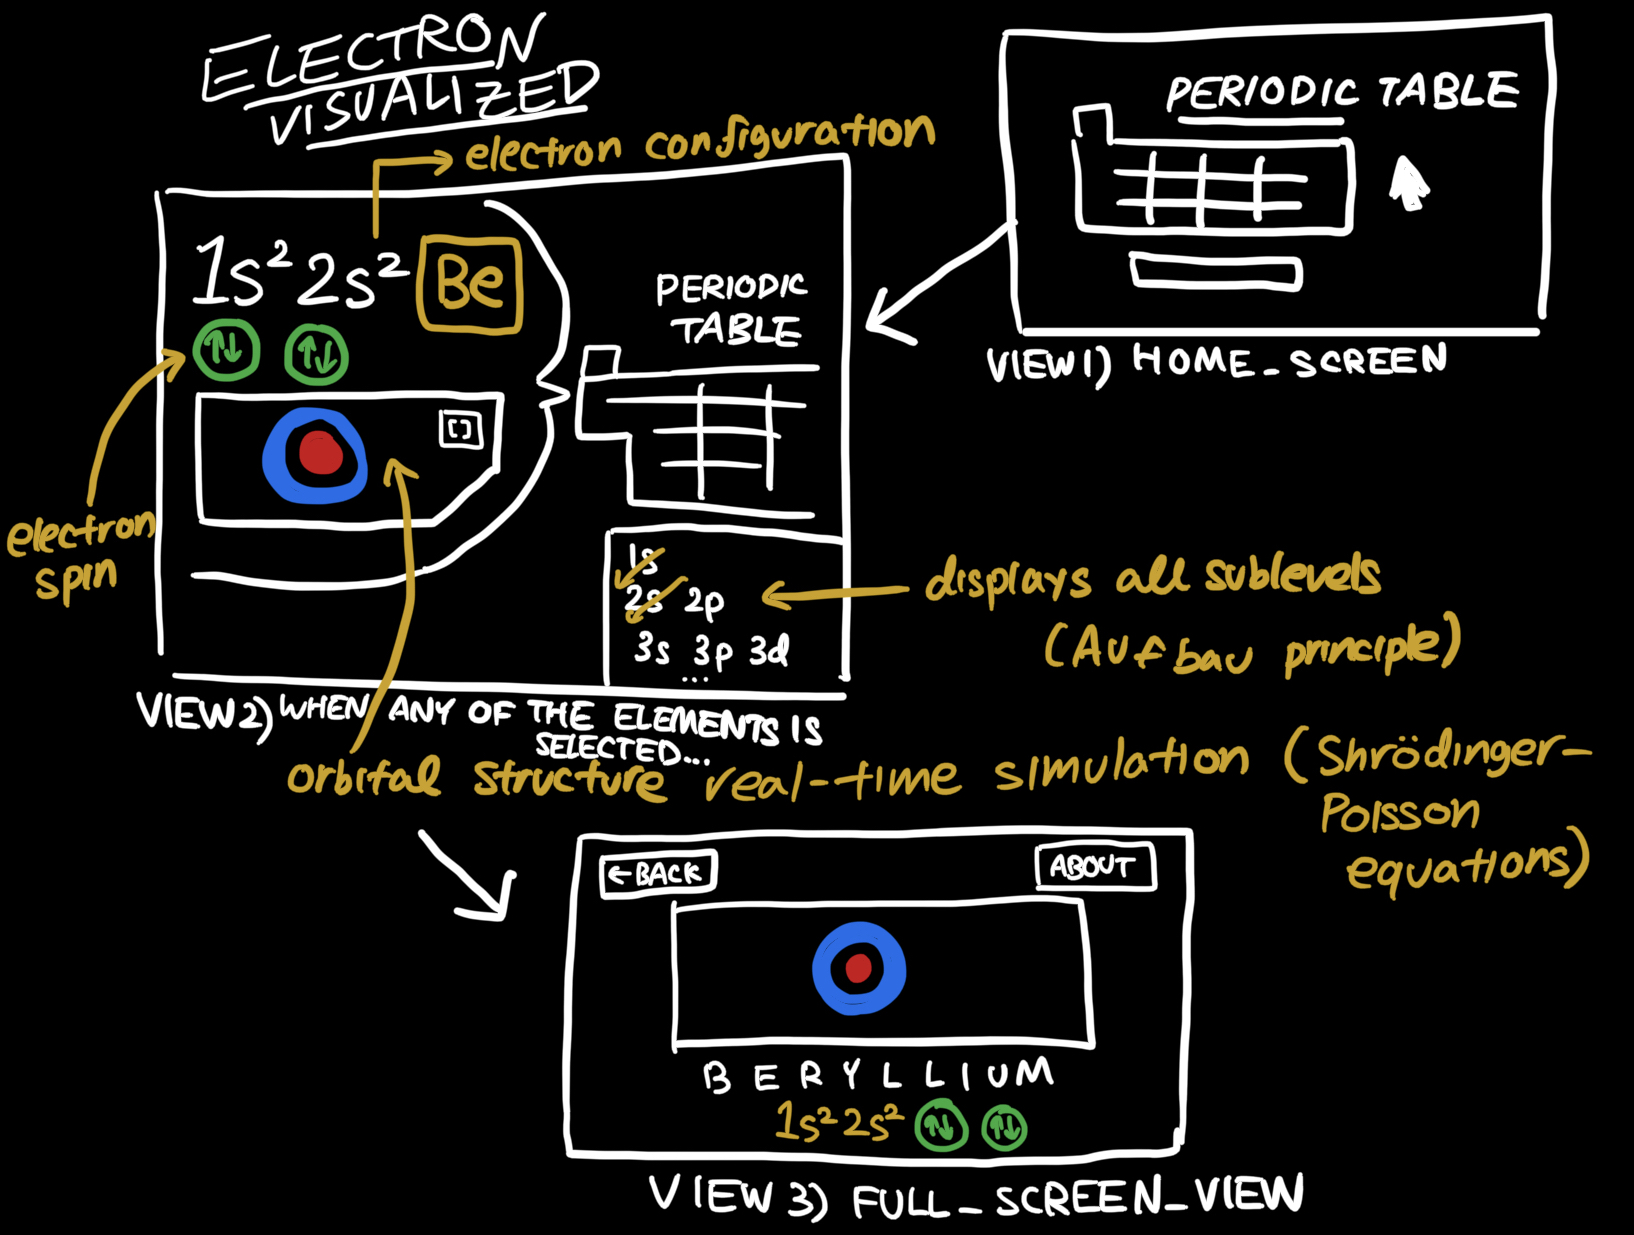 ELECTRON
VISUALIZED
electron configuration
1s² 2s² Be
↑↓ ↑↓
electron
spin
PERIODIC
TABLE
[ ]
1s
2s 2p
3s 3p 3d
...
displays all sublevels
(Aufbau principle)
VIEW 2) WHEN ANY OF THE ELEMENTS IS
SELECTED...
orbital structure real-time simulation (Shrödinger-
Poisson
equations)
PERIODIC TABLE
VIEW 1) HOME_SCREEN
← BACK
ABOUT
BERYLLIUM
1s² 2s² ↑↓ ↑↓
VIEW 3) FULL_SCREEN_VIEW